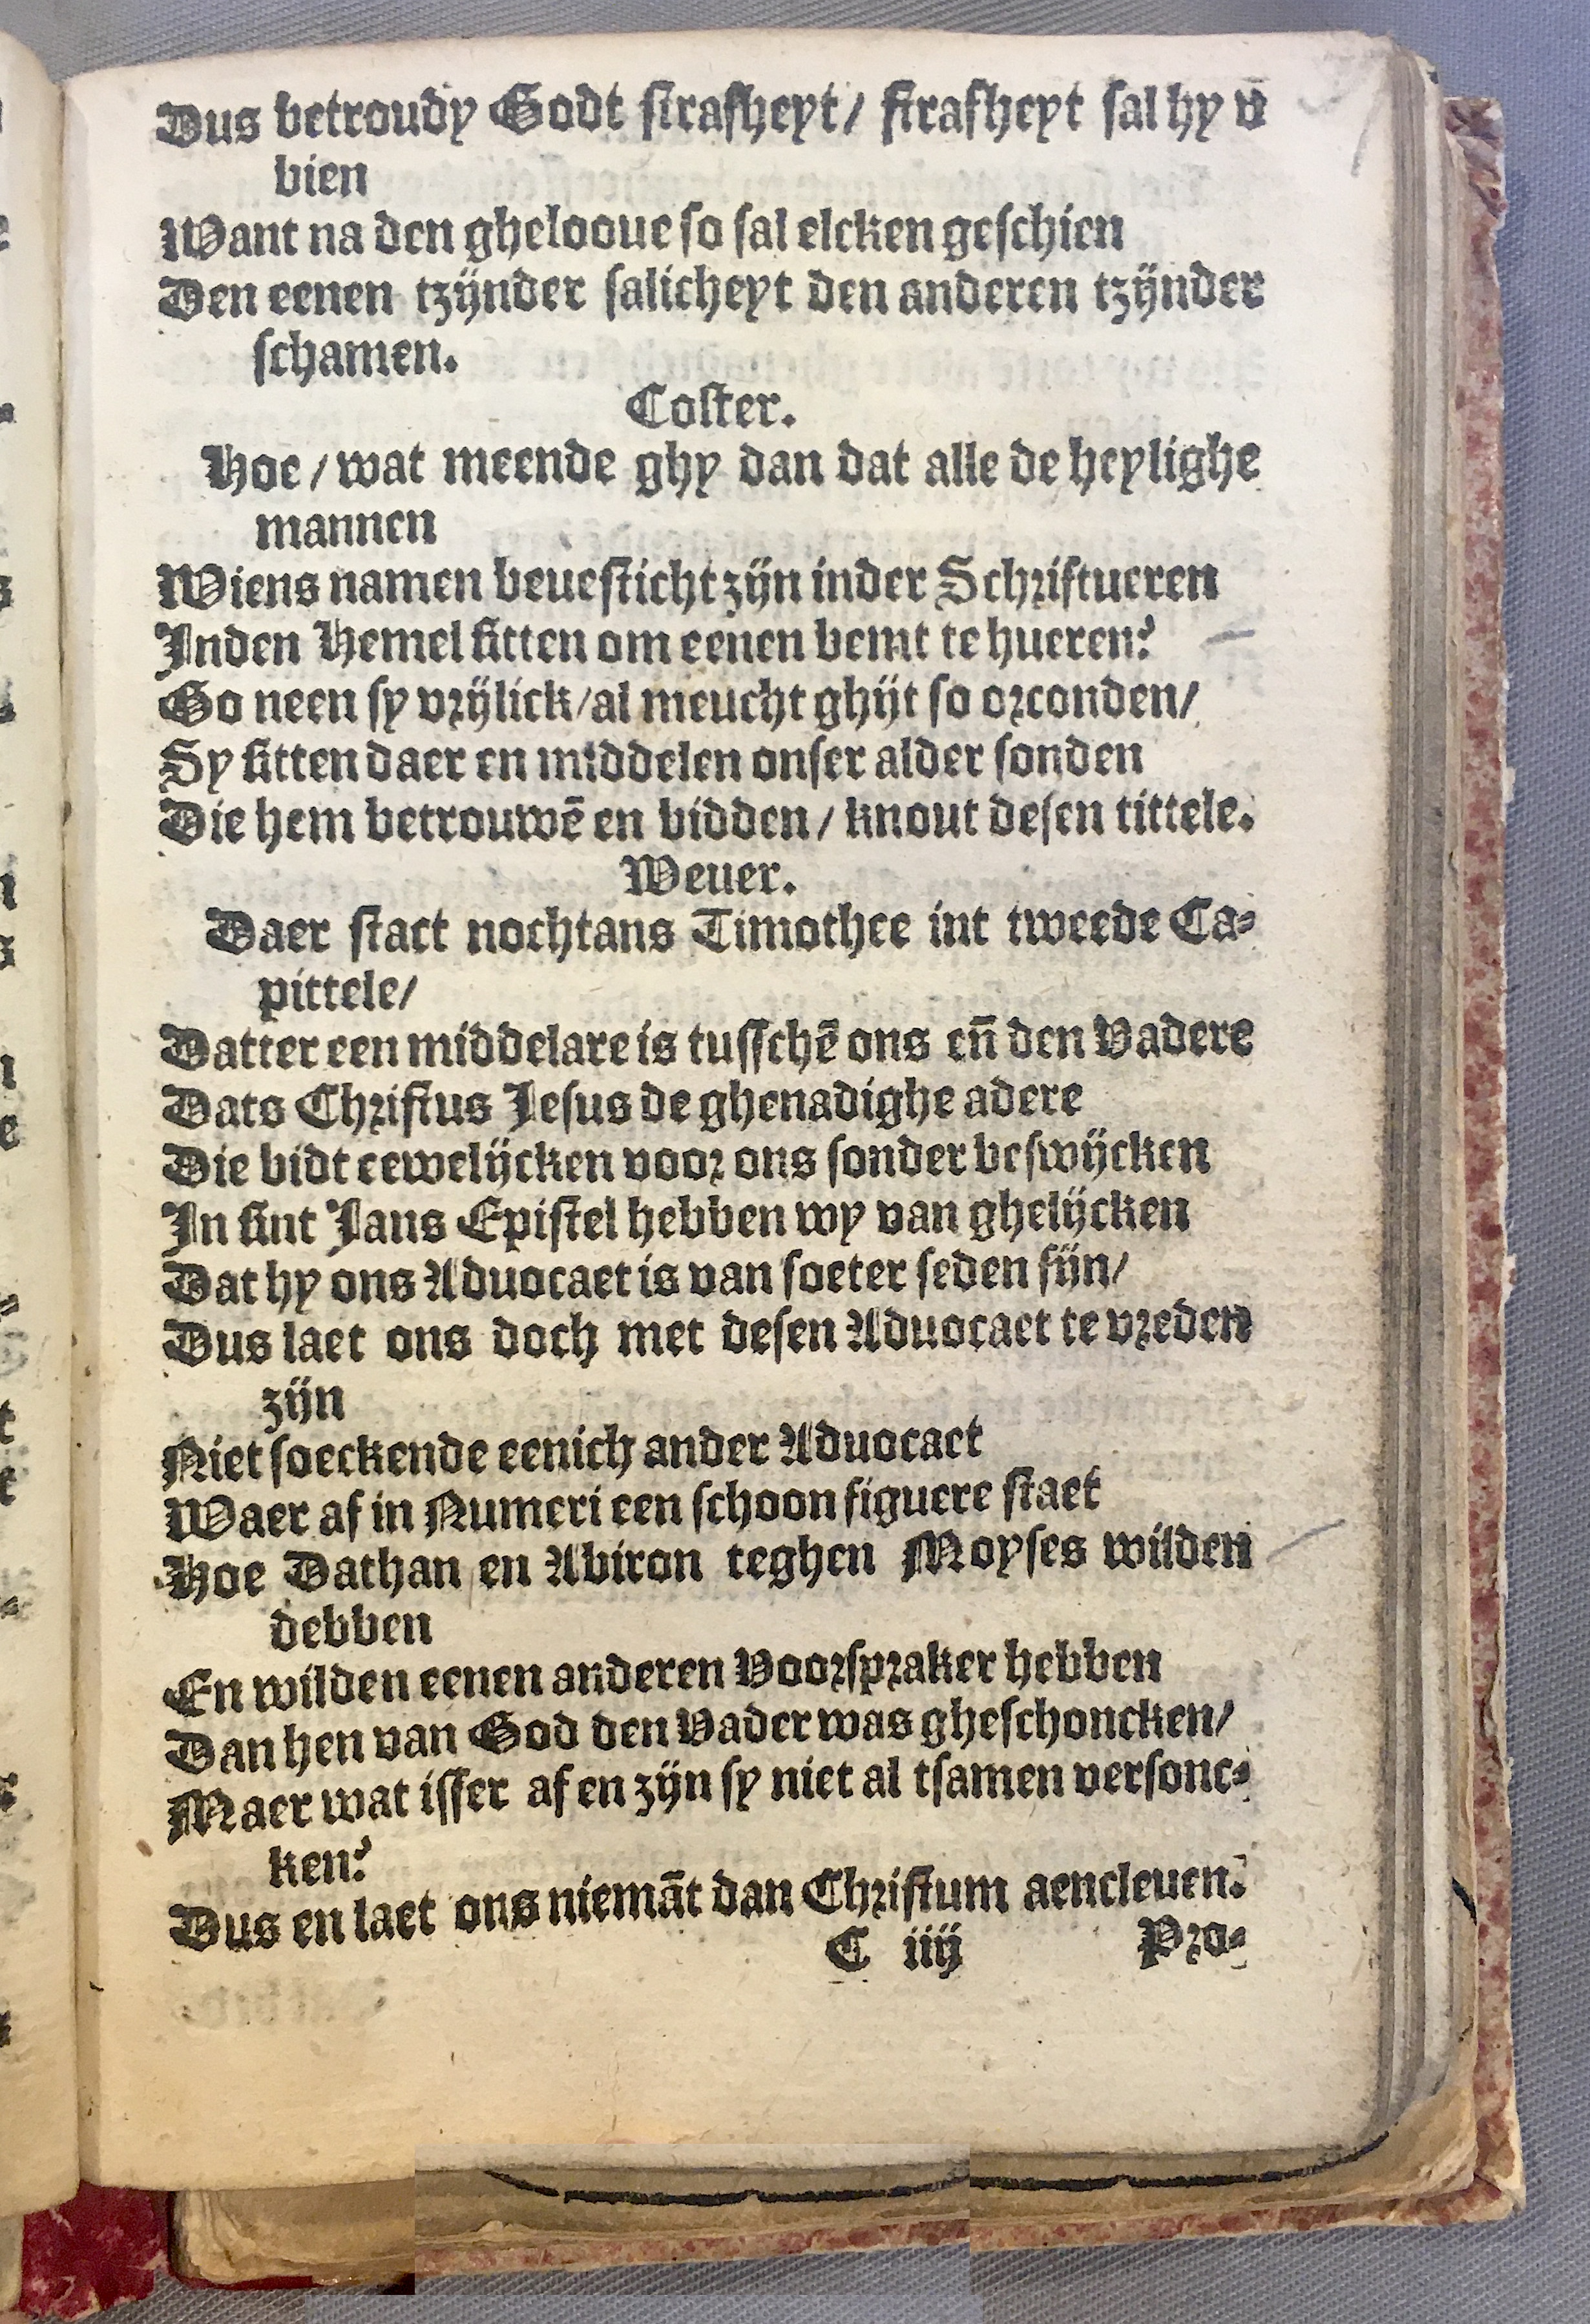 Dus betroudy Godt strafheyt/ strafheyt sal hy v̄
bien
Want na den gheloove so sal elcken geschien
Den eenen tzijnder salicheyt den anderen tzijnder
schamen.
Coster.
Hoe/wat meende ghy dan dat alle de heylighe
mannen
Wiens namen bevesticht zijn inder Schriftueren
Inden Hemel sitten om eenen bemt te hueren?
Go neen sy vrijlick/al meucht ghijt so orconden/
Sy sitten daer en middelen onser alder sonden
Die hem betrouwē en bidden/ knout desen tittele.
Wever.
Daer staet nochtans Timothee int tweede Ca-
pittele/
Datter een middelare is tusschē ons eñ den Vadere
Dats Christus Jesus de ghenadighe adere
Die bidt eewelijcken voor ons sonder beswijcken
In sint Jans Epistel hebben wy van ghelijcken
Dat hy ons Advocaet is van soeter seden fijn/
Dus laet ons doch met desen Advocaet te vreden
zijn
Niet soeckende eenich ander Advocaet
Waer af in Numeri een schoon figuere staet
Hoe Dathan en Abiron teghen Moyses wilden
debben
En wilden eenen anderen Voorspraker hebben
Dan hen van God den Vader was gheschoncken/
Maer wat isser af en zijn sy niet al tsamen versonc-
ken?
Dus en laet ons niemāt dan Christum aencleven.
C iiij Pro-